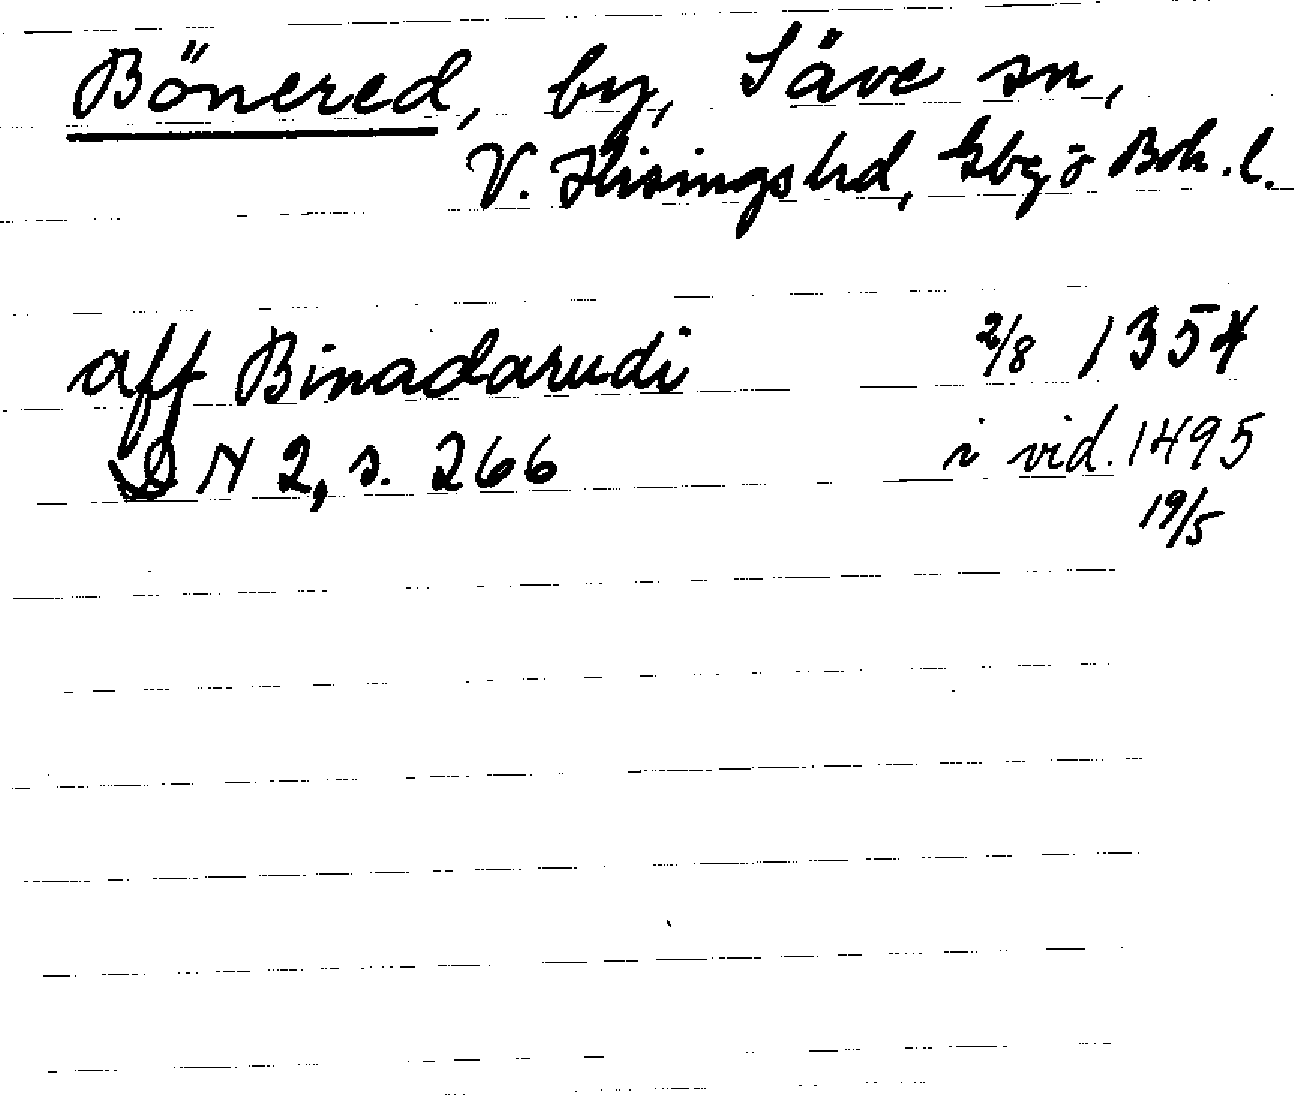 Bönered, by, Säve sn,
V. Hisings hd, Gbg o Boh. l.
aff Binadarudi 2/8 1354
DN 2, s. 266 i vid. 1495
19/5